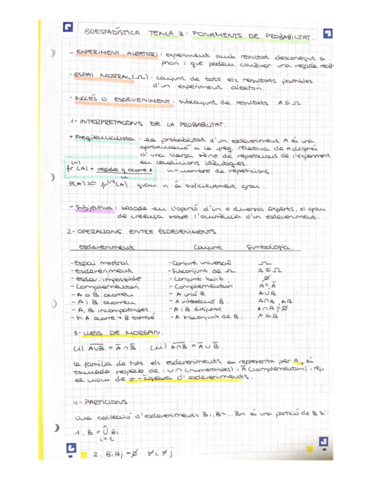 BIOESTADÍSTICA TEMA 3: FONAMENTS DE PROBABILITAT.
- EXPERIMENT ALEATORI: experiment amb resultat desconegut a
priori que podem conèixer una vegada realitzat
- ESPAI MOSTRAL (Ω): conjunt de tots els resultats possibles
d'un experiment aleatori.
- SUCCÉS O ESDEVENIMENT: subconjunt de resultats A ⊆ Ω
1- INTERPRETACIONS DE LA PROBABILITAT.
• Freqüencialista: la probabilitat d'un esdeveniment A és una
aproximació a la freq. relativa de A després
d'una llarga sèrie de repeticions de l'experiment
en condicions idèntiques.
fr(A) = vegades q ocorre A
n = nombre de repeticions
P(A) ≈ fr⁽ⁿ⁾(A) quan n és suficientment gran.
• Subjectiva: basada en l'opinió d'un o diversos experts, el grau
de creença sobre l'ocurrència d'un esdeveniment.
2- OPERACIONS ENTRE ESDEVENIMENTS
Esdeveniment Conjunt Simbologia
- Espai mostral - Conjunt universal Ω
- Esdeveniment - Subconjunt de Ω A ⊆ Ω
- Esdev. impossible - Conjunt buit ∅
- Complementari - Complementari
- A o B ocorren - A unió B A∪B
- A i B ocorren - A intersecció B A∩B, AB
- A, B incompatibles - A i B disjunts A∩B = ∅
- Si A ocorre → B també - A subconjunt de B. A ⊆ B
3- LLEIS DE MORGAN.
(i) A∪B = A ∩ B (ii) A∩B = A ∪ B
la família de tots els esdeveniments es representa per A, és
tancada respecte de: ∪, ∩ (numerables) i A (complementari), rep
el nom de σ-àlgebra d'esdeveniments.
4- PARTICIONS
Una col·lecció d'esdeveniments B₁, B₂... Bn és una partició de B si:
1. B = ∪ Bi
i=1
2. Bi Bj = ∅ ∀ i ≠ j